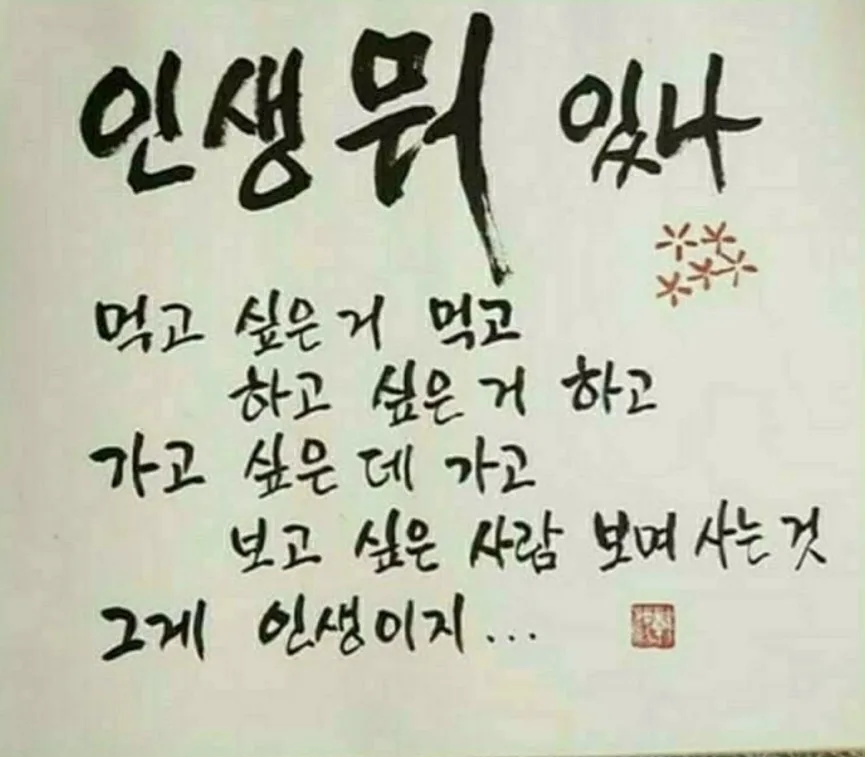 인생 뭐 있나
먹고 싶은거 먹고
하고 싶은거 하고
가고 싶은데 가고
보고 싶은 사람 보며 사는것
그게 인생이지...